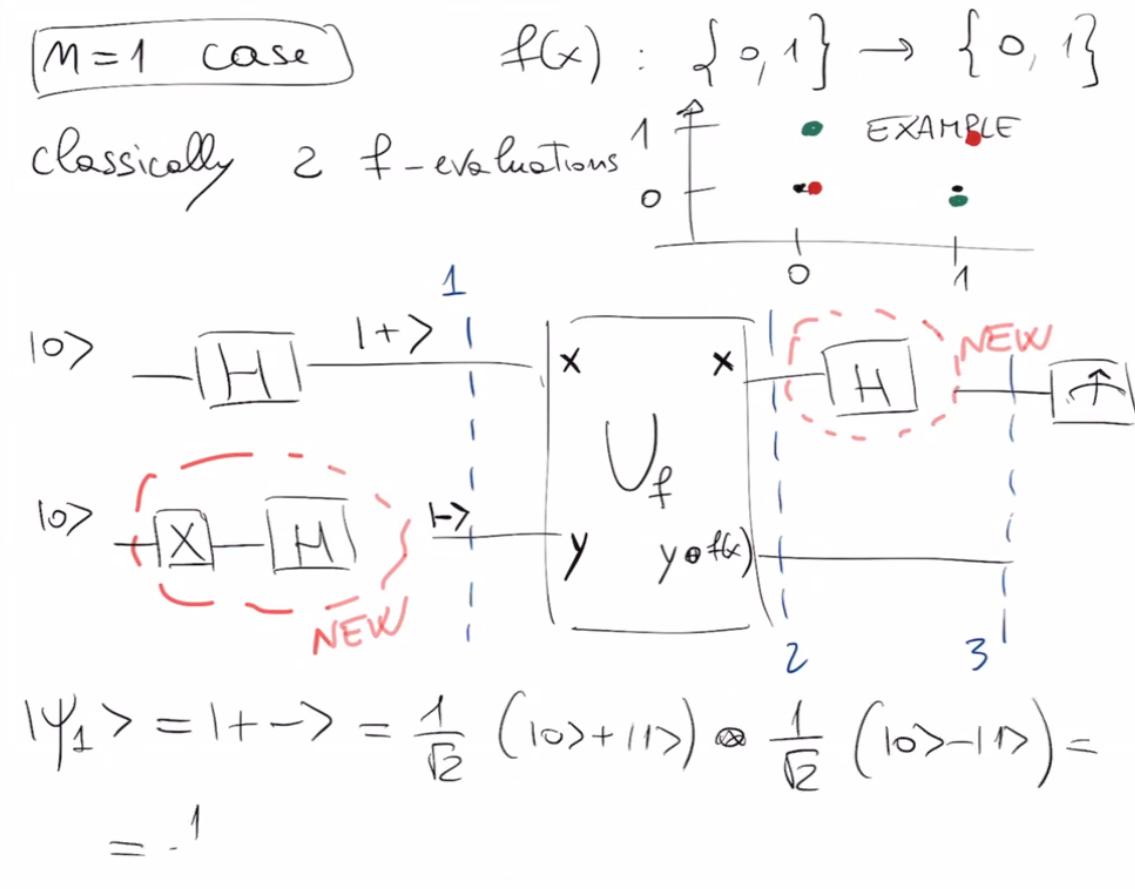 n=1 case f(x) : {0,1} → {0,1}
classically 2 f-evaluations
1 EXAMPLE
0
0 1
1
|0> H |+> x x H NEW
U_f
|0> X H |-> y y⊕f(x)
NEW
2 3
|ψ₁> = |+-> = 1/√2 (|0>+|1>) ⊗ 1/√2 (|0>-|1>) =
= 1